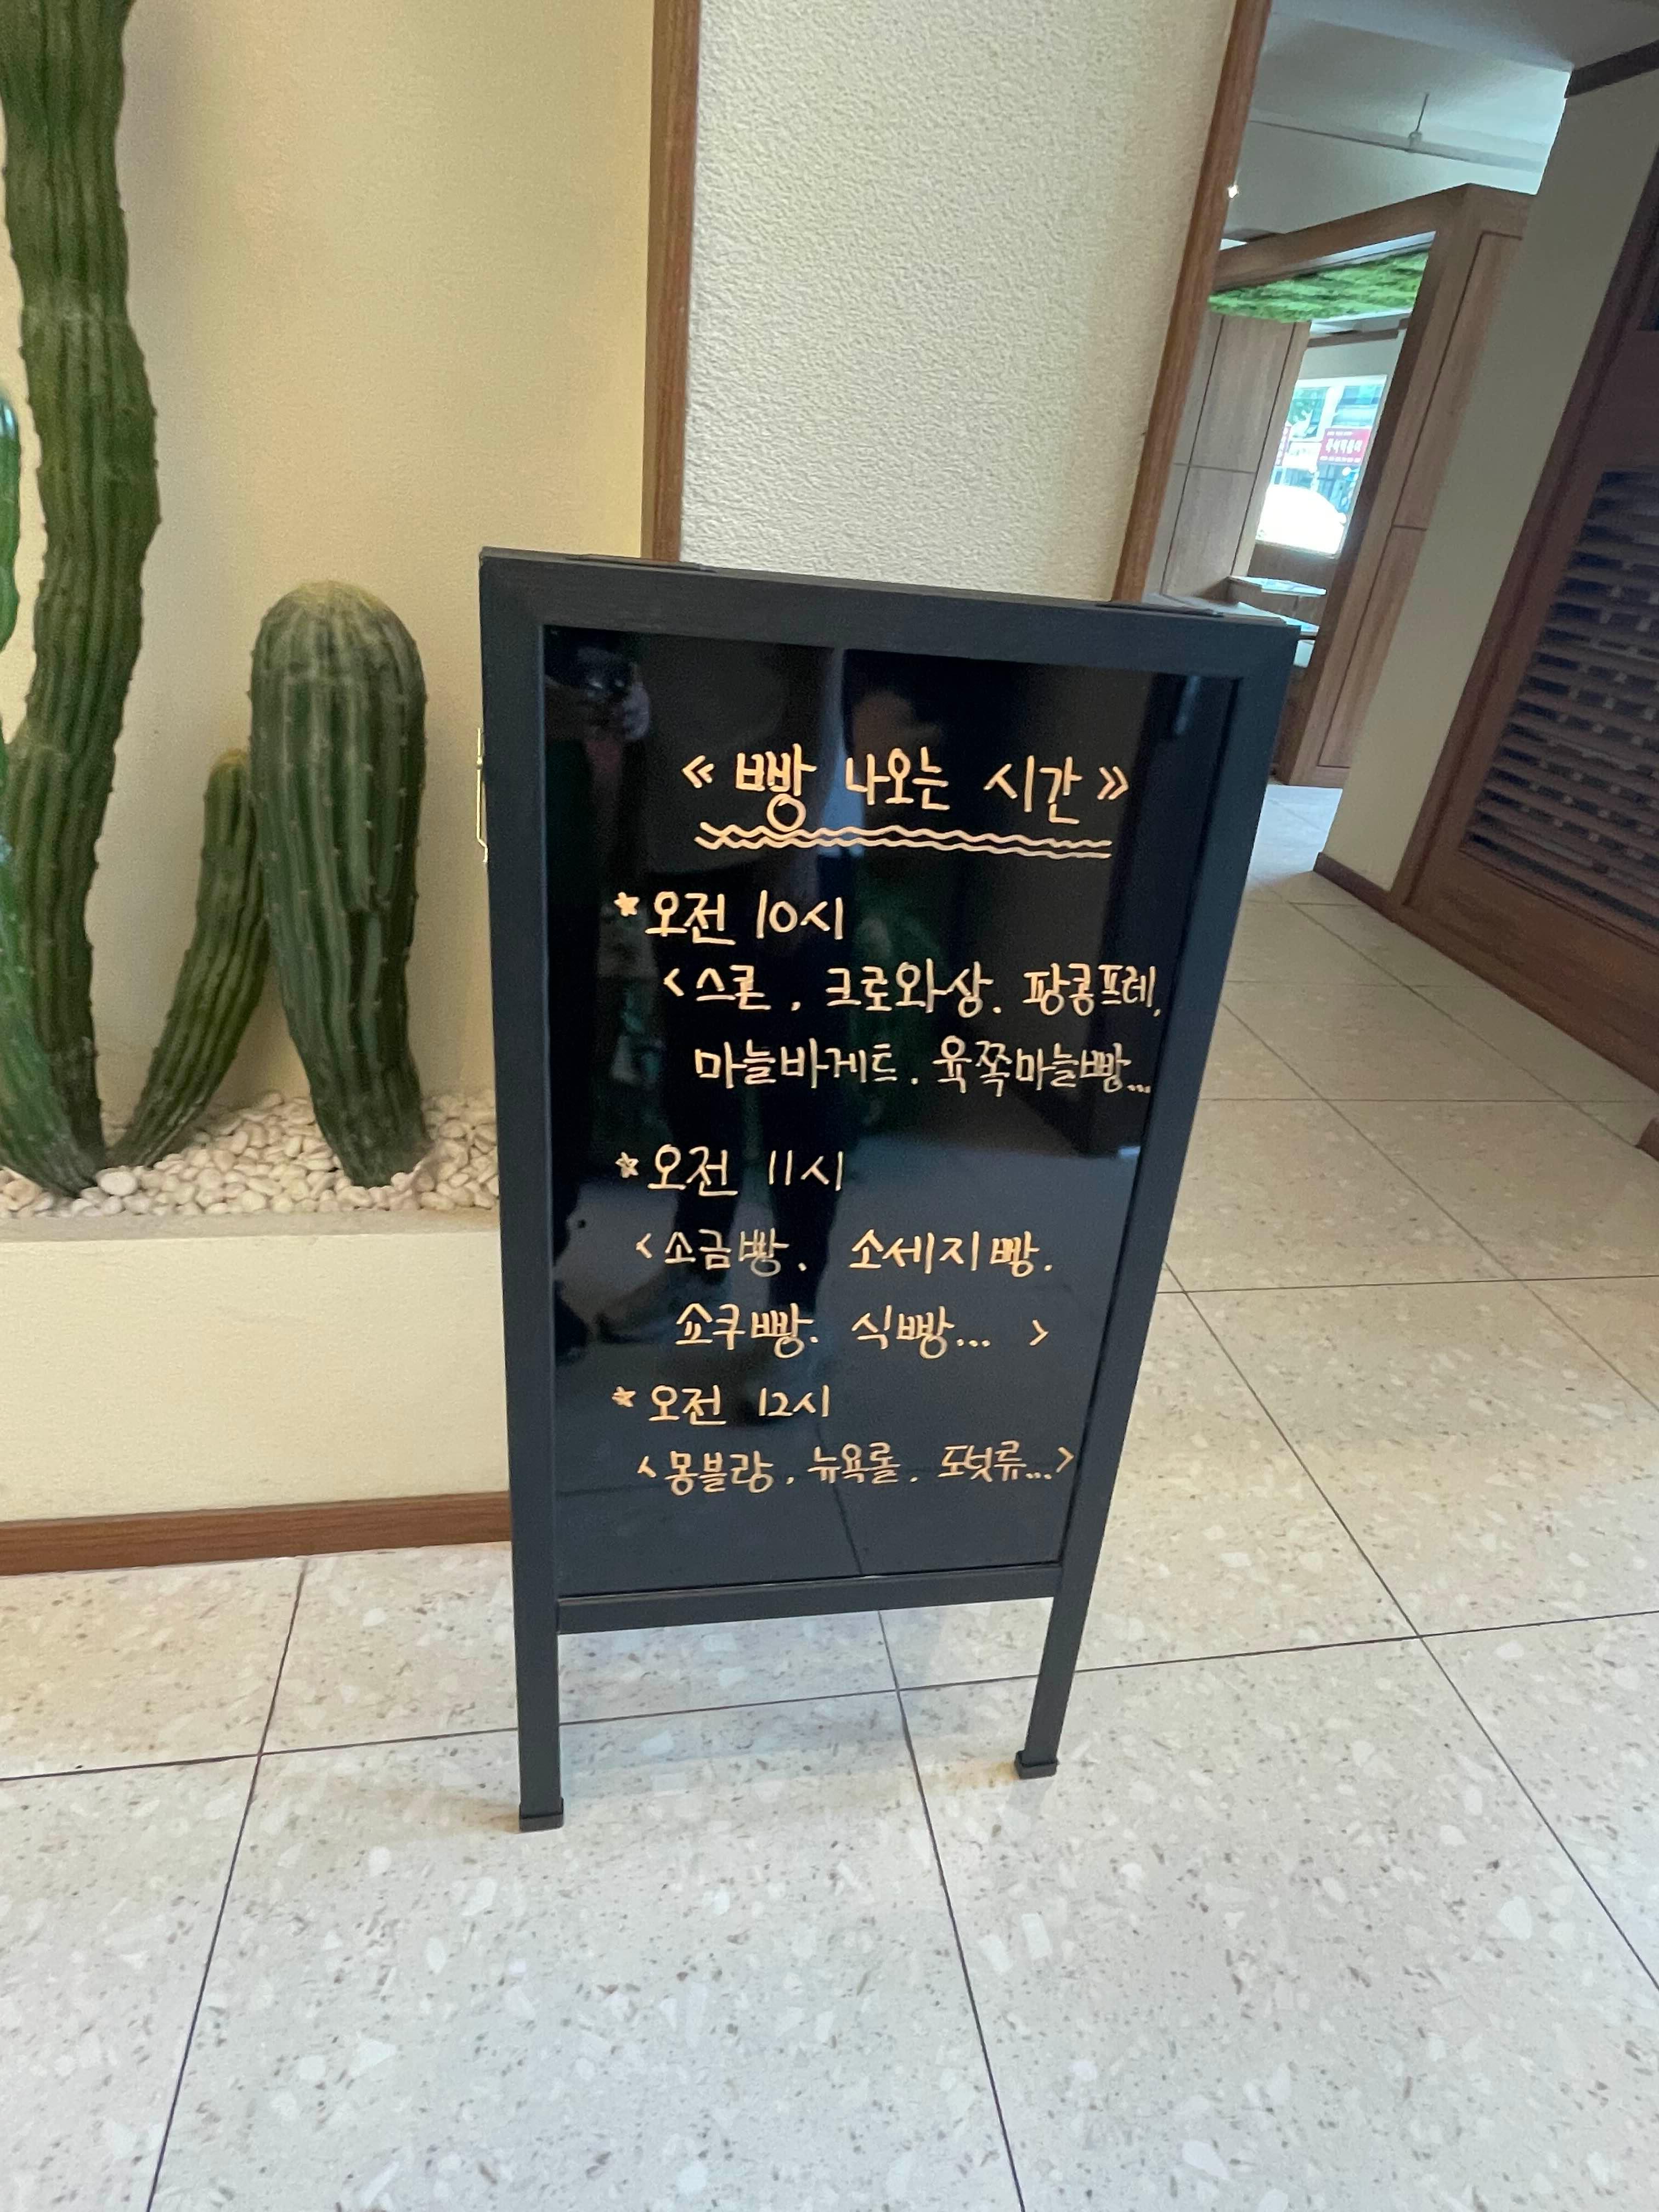 《 빵 나오는 시간 》
* 오전 10시
<스콘, 크로와상. 팡콩프레,
마늘바게트. 육쪽마늘빵...
* 오전 11시
<소금빵, 소세지빵.
쇼쿠빵. 식빵... >
* 오전 12시
<몽블랑, 뉴욕롤. 도넛류...>